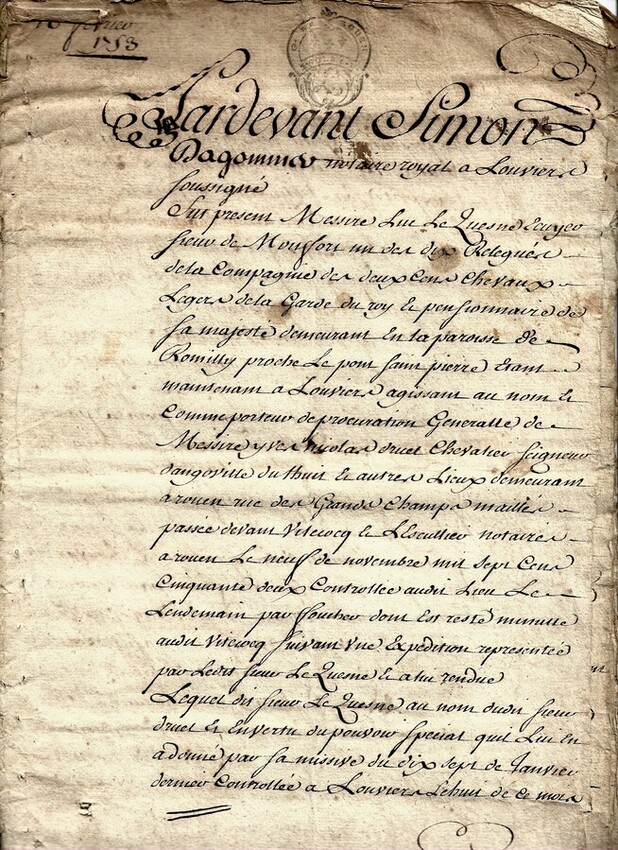 fevrier
1753
Pardevant Simon
Dagommer notaire royal a Louviers
soussigné
Fut present Messire Luc Le Quesne Ecuyer
sieur de Monffort un des dix Releguės
de la Compagnie des deux Cens Chevaux
Legers de la Garde du roy & pensionnaire de
sa majesté demeurant En la paroisse de
Romilly proche Le pont saint pierre Etant
maintenant a Louviers agissant au nom &
Comme porteur de procuration Generalle de
Messire yves Nicolas druet Chevalier seigneur
dangoville du thuit & autres Lieux demeurant
a rouen rue des Grands Champs maillés
passée devant Vitecocq & notaires
a rouen Le neuf de novembre mil sept Cens
Cinquante deux Controllée audit Lieu Le
Lendemain par dont Est resté minutte
audit Vitecocq suivant une Expedition representée
par Ledit sieur Le Quesne & a lui rendue
Lequel dit sieur Le Quesne au nom dudit sieur
druet & En vertu du pouvoir special quil Lui En
a donné par sa missive du dix sept de Janvier
dernier Controllée a Louviers Lehuit de Ce mois